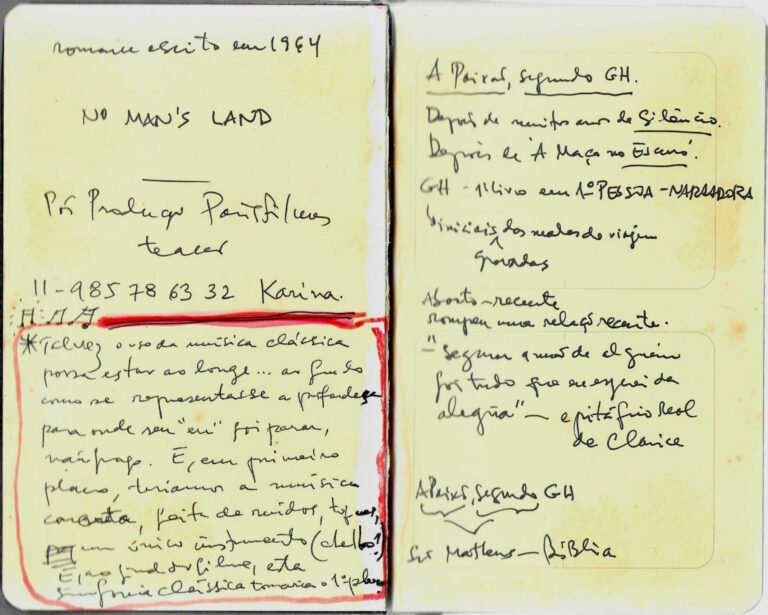 romance escrito em 1964
NO MAN'S LAND
Pós Produção Paris filmes
teaser
11-985 78 63 32 Karina.
*Talvez o uso da música clássica
possa estar ao longe... ao fundo
como se representasse a profundeza
para onde seu "eu" foi parar,
náufrago. E, em primeiro
plano, teríamos a música
concreta, feita de ruídos, toques,
um único instrumento (cello?)
E, ao final do filme, esta
sinfonia clássica tomaria o 1º plano
A Paixão, segundo GH.
Depois de muitos anos de Silêncio.
Depois de 'A Maçã no Escuro'.
GH - 1º livro em 1ª PESSOA - NARRADORA
iniciais das malas de viagem
gravadas
Aborto-recente
rompeu uma relação recente.
- "Segurar a mão de alguém
foi tudo que eu esperei da
alegria" - epitáfio real
de Clarice
A Paixão, Segundo GH
São Matheus - Bíblia